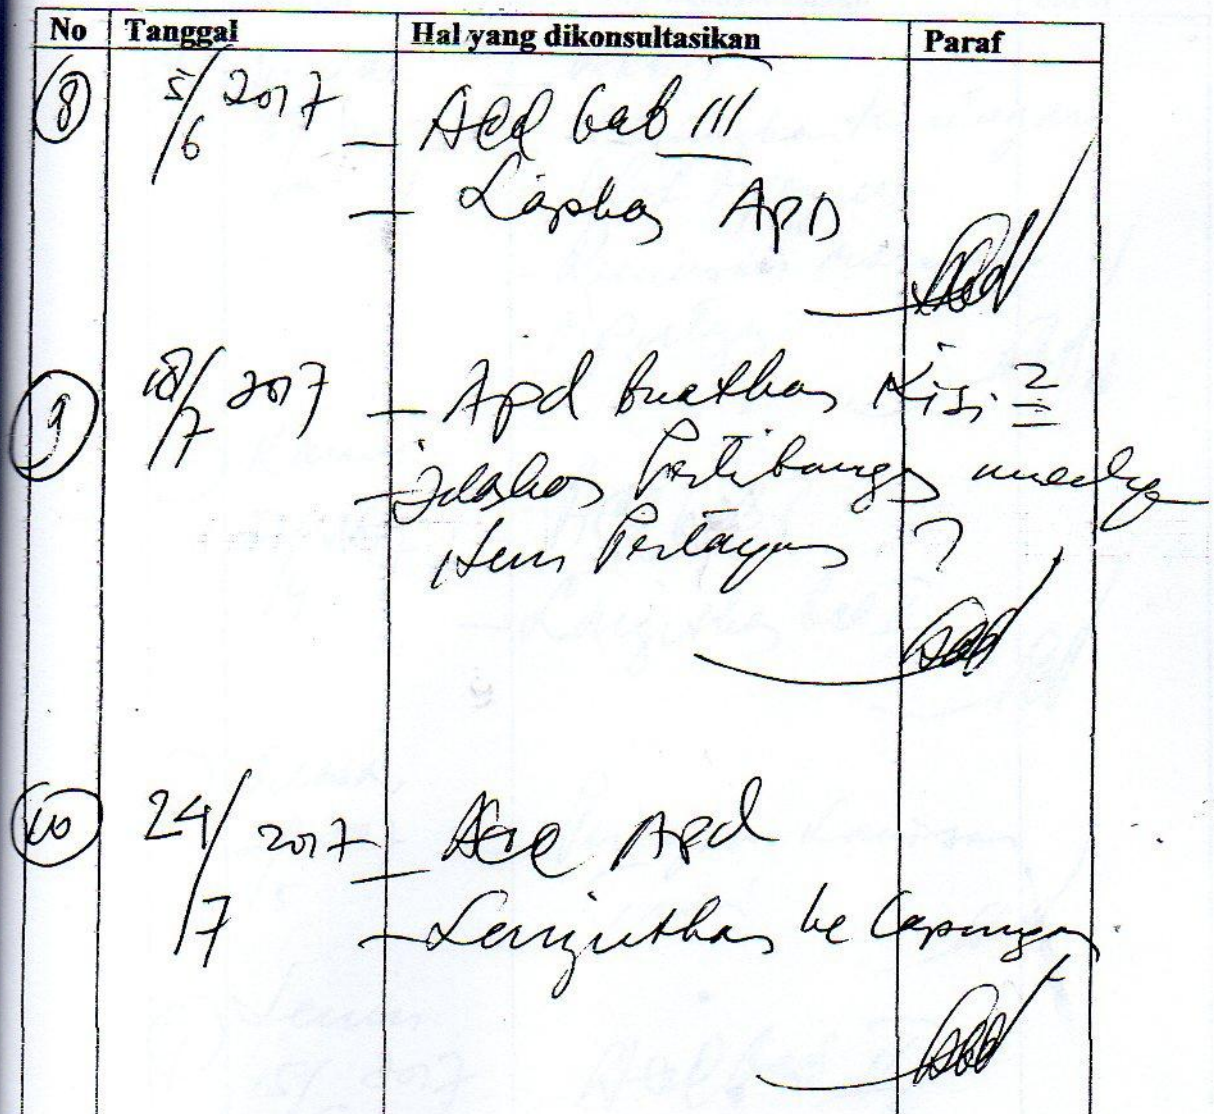 No Tanggal Hal yang dikonsultasikan Paraf
8 5/6 2017 - Acc bab III
- Siapkan APD
9 18/7 2017 - Apd buatkan Kisi 2
- Jelaskan
item Pertanyaan ?
10 24/7 2017 - Acc Apd
- Lanjutkan ke Lapangan.